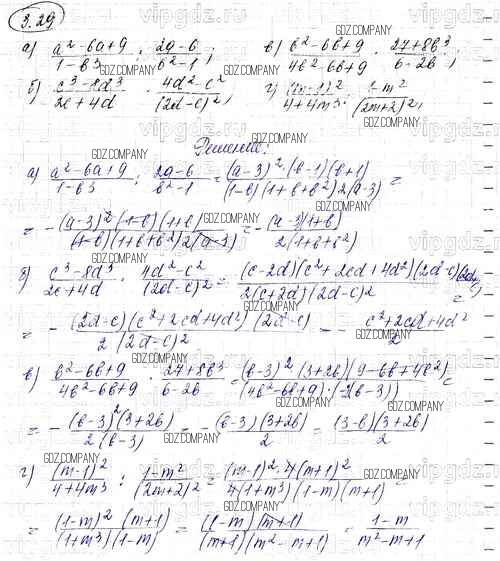 3.29
а) (a²-6a+9)/(1-b³) : (2a-6)/(b²-1); в) (b²-6b+9)/(4b²-6b+9) · (27+8b³)/(6-2b);
б) (c³-8d³)/(2c+4d) · (4d²-c²)/(2d-c)²; г) (m-1)²/(4+4m³) : (1-m²)/(2m+2)²;
Решение:
а) (a²-6a+9)/(1-b³) : (2a-6)/(b²-1) = (a-3)²·(b-1)(b+1)/(1-b)(1+b+b²)2(a-3) =
= -(a-3)²(1-b)(1+b)/(1-b)(1+b+b²)2(a-3) = -(a-3)(1+b)/2(1+b+b²)
б) (c³-8d³)/(2c+4d) · (4d²-c²)/(2d-c)² = (c-2d)(c²+2cd+4d²)(2d-c)/2(c+2d)(2d-c)² =
= -(2d-c)(c²+2cd+4d²)(2d-c)/2(2d-c)² = -(c²+2cd+4d²)/2
в) (b²-6b+9)/(4b²-6b+9) · (27+8b³)/(6-2b) = (b-3)²(3+2b)(9-6b+4b²)/(4b²-6b+9)·(-2(b-3)) =
= -(b-3)²(3+2b)/2(b-3) = -(b-3)(3+2b)/2 = (3-b)(3+2b)/2
г) (m-1)²/(4+4m³) : (1-m²)/(2m+2)² = (m-1)²·4(m+1)²/4(1+m³)(1-m)(m+1) =
= (1-m)²(m+1)/(1+m³)(1-m) = (1-m)(m+1)/(m+1)(m²-m+1) = (1-m)/(m²-m+1)